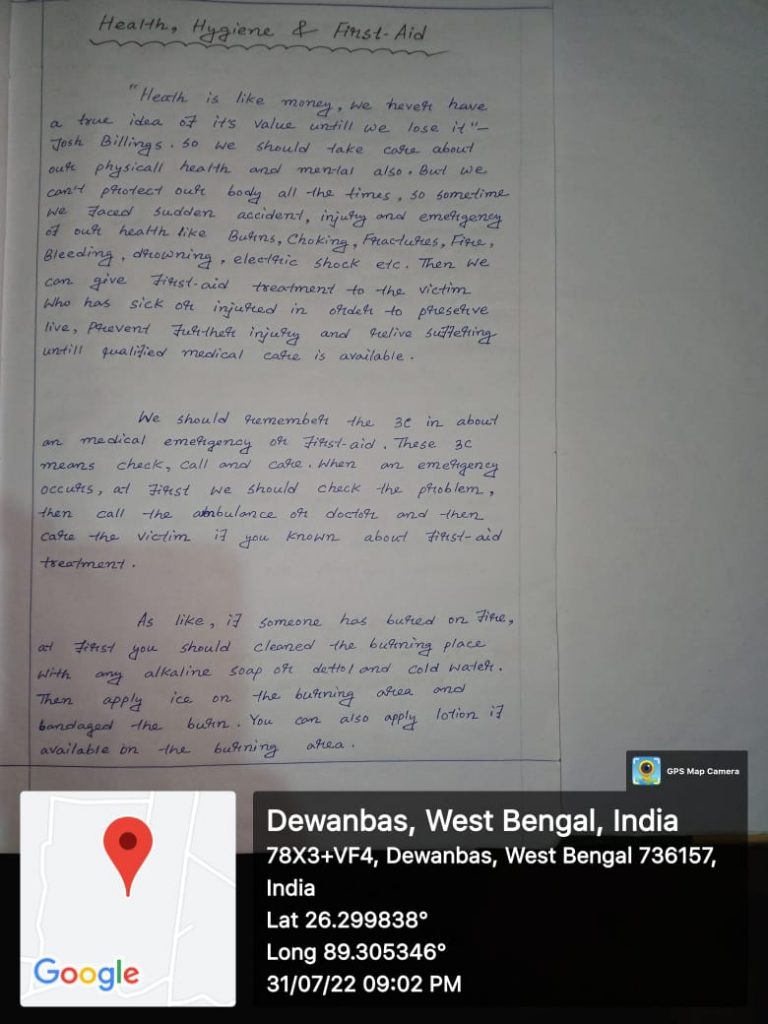 Health, Hygiene & First-Aid
"Heath is like money, we never have
a true idea of it's value untill we lose it"-
Josh Billings. so we should take care about
our physicall health and mental also. But we
can't protect our body all the times, so sometime
we faced sudden accident, injury and emergency
of our health like Burns, Choking, Fractures, Fire,
Bleeding, drowning, electric shock etc. Then we
can give First-aid treatment to the victim
who has sick or injured in order to preserve
live, Prevent further injury and relive suffering
untill qualified medical care is available.
We should remember the 3C in about
an medical emergency or First-aid. These 3C
means check, call and care. When an emergency
occurs, at first we should check the problem,
then call the ambulance or doctor and then
care the victim if you known about First-aid
treatment.
As like, if someone has bured on fire,
at first you should cleaned the burning place
with any alkaline soap or dettol and cold water.
Then apply ice on the burning area and
bandaged the burn. You can also apply lotion if
available on the burning area.
GPS Map Camera
Dewanbas, West Bengal, India
78X3+VF4, Dewanbas, West Bengal 736157,
India
Lat 26.299838°
Long 89.305346°
31/07/22 09:02 PM
Google